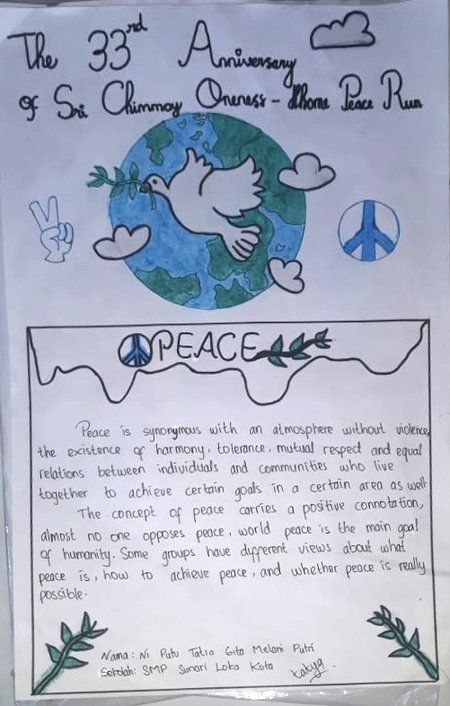 The 33rd Anniversary
of Sri Chinmoy Oneness - Home Peace Run
PEACE
Peace is synonymous with an atmosphere without violence,
the existence of harmony, tolerance, mutual respect and equal
relations between individuals and communities who live
together to achieve certain goals in a certain area as well
The concept of peace carries a positive connotation,
almost no one opposes peace, world peace is the main goal
of humanity. Some groups have different views about what
peace is, how to achieve peace, and whether peace is really
possible.
Nama : Ni Putu Talia Gita Melani Putri
Sekolah: SMP Sunari Loka Kuta